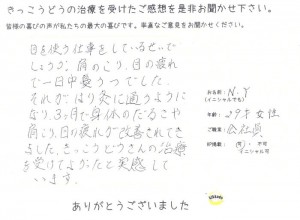 きっこうどうの治療を受けたご感想を是非お聞かせ下さい。
皆様の喜びの声が私たちの最大の喜びです。率直なご意見をお聞かせください。
目を使う仕事をしているせいで
しょうか、肩のこり、目の疲れ
で一日中憂うつでした。
それが、はり灸に通うように
なり、3ヶ月で身体のだるさや
肩こり、目の疲れが改善されてき
ました。きっこうどうさんの治療
を受けてよかったと実感して
います。
お名前: N.Y
(イニシャルでも)
年齢: 29才 女性
ご職業: 会社員
HP掲載: 可 ・ 不可
イニシャル可
ありがとうございました